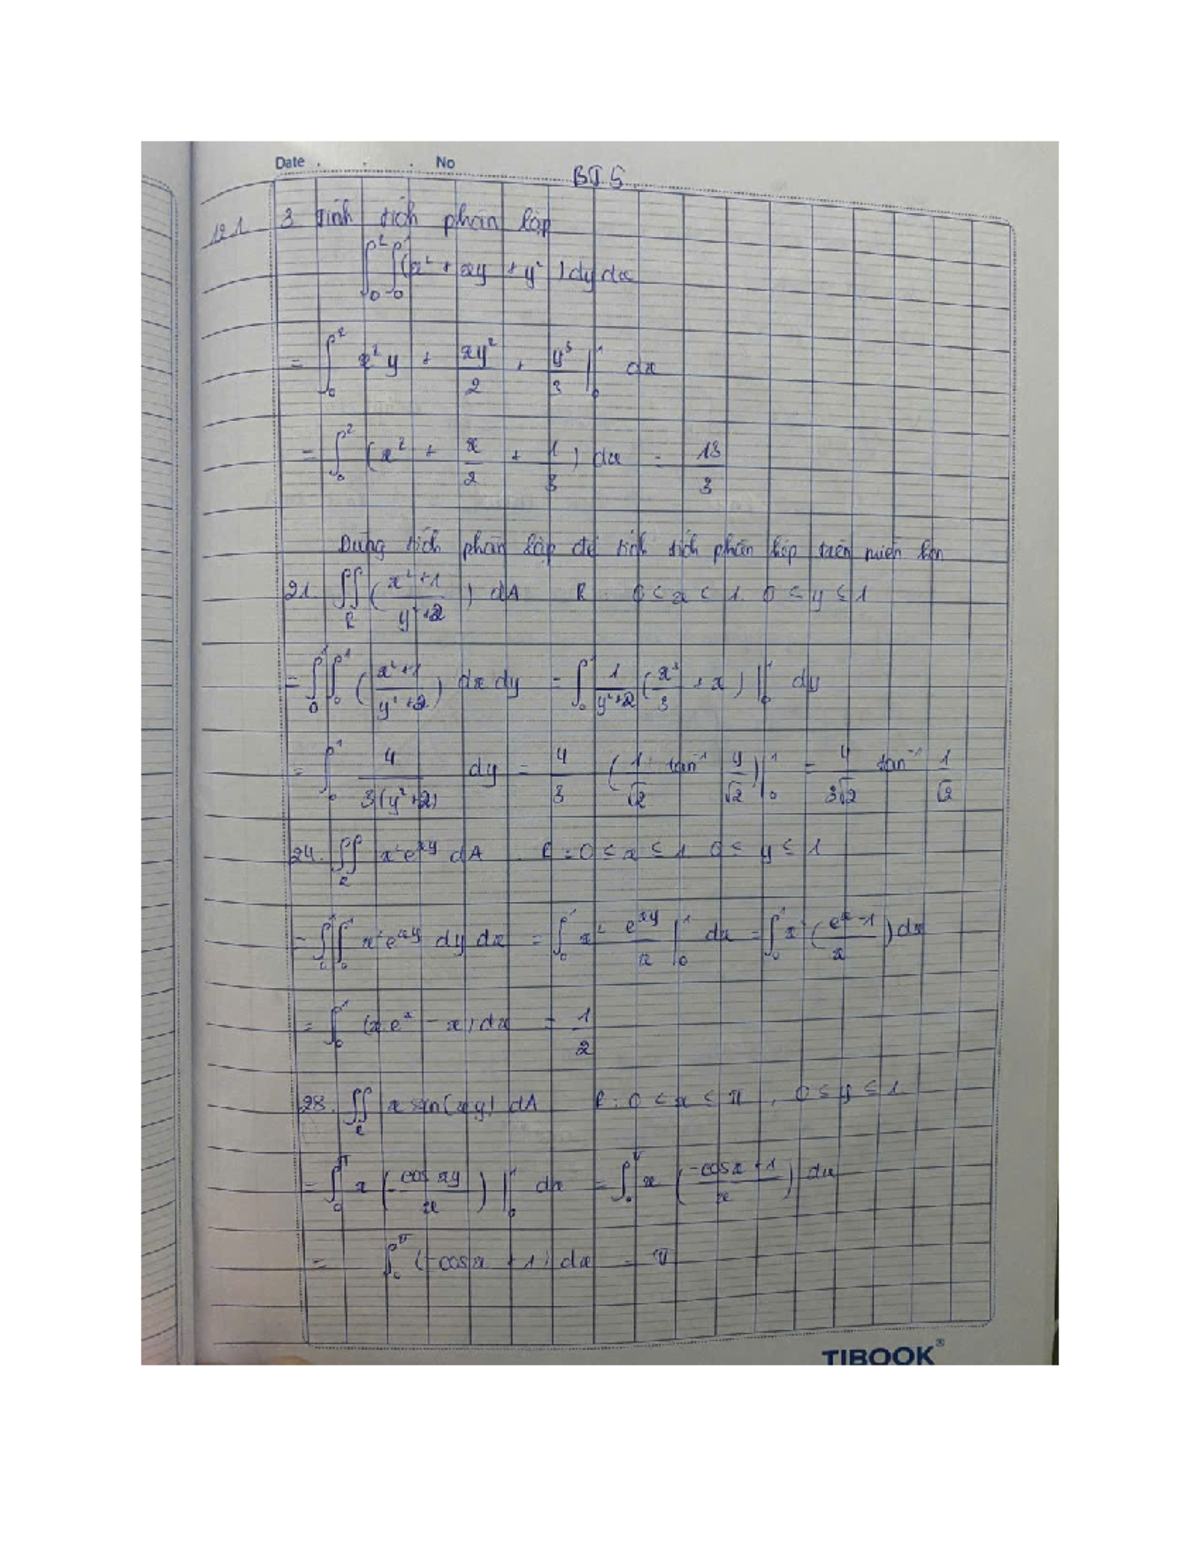 Date . . . No
BT 5
12.1 3 Tính tích phân lặp
∫₀² ∫₀¹ (x² + xy + y²) dy dx
= ∫₀² x²y + xy²/2 + y³/3 |₀¹ dx
= ∫₀² (x² + x/2 + 1/3) dx = 13/3
Dùng tích phân lặp để tính tích phân kép trên miền
21. ∬_R ((x²+1)/(y²+2)) dA R: 0 ≤ x ≤ 1 0 ≤ y ≤ 1
= ∫₀¹ ∫₀¹ ((x²+1)/(y²+2)) dx dy = ∫₀¹ 1/(y²+2) (x³/3 + x) |₀¹ dy
= ∫₀¹ 4/(3(y²+2)) dy = 4/3 (1/√2 tan⁻¹ y/√2) |₀¹ = 4/(3√2) tan⁻¹ 1/√2
24. ∬_R x²e^(xy) dA R = 0 ≤ x ≤ 1 0 ≤ y ≤ 1
= ∫₀¹ ∫₀¹ x²e^(xy) dy dx = ∫₀¹ x² e^(xy)/x |₀¹ dx = ∫₀¹ x² ((e^x - 1)/x) dx
= ∫₀¹ (x e^x - x) dx = 1/2
28. ∬_R x sin(xy) dA R: 0 ≤ x ≤ π, 0 ≤ y ≤ 1
= ∫₀^π x (-cos xy/x) |₀¹ dx = ∫₀^π x ((-cos x + 1)/x) dx
= ∫₀^π (-cos x + 1) dx = π
TIBOOK®